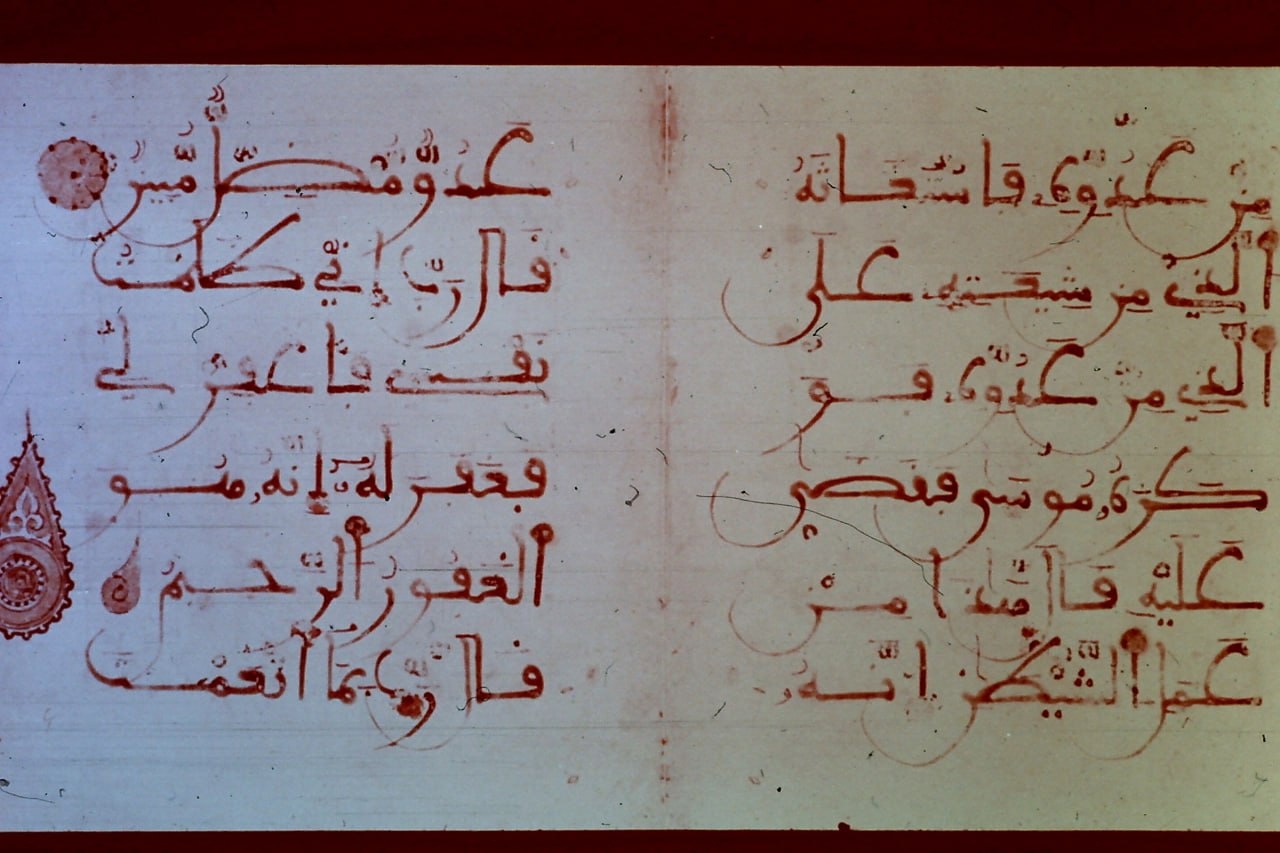 مِنْ عَدُوِّهِۦ فَاسْتَغَاثَهُ
الذِي مِن شِيعَتِهِۦ عَلَى
الذِي مِنْ عَدُوِّهِۦ فَوَ
كَزَهُۥ مُوسَىٰ فَقَضَىٰ
عَلَيْهِ قَالَ هَٰذَا مِنْ
عَمَلِ الشَّيْطَٰنِ إِنَّهُۥ
عَدُوٌّ مُّضِلٌّ مُّبِينٌ
قَالَ رَبِّ إِنِّي ظَلَمْتُ
نَفْسِي فَاغْفِرْ لِي
فَغَفَرَ لَهُۥٓ إِنَّهُۥ هُوَ
الْغَفُورُ الرَّحِيمُ
قَالَ رَبِّ بِمَا أَنْعَمْتَ